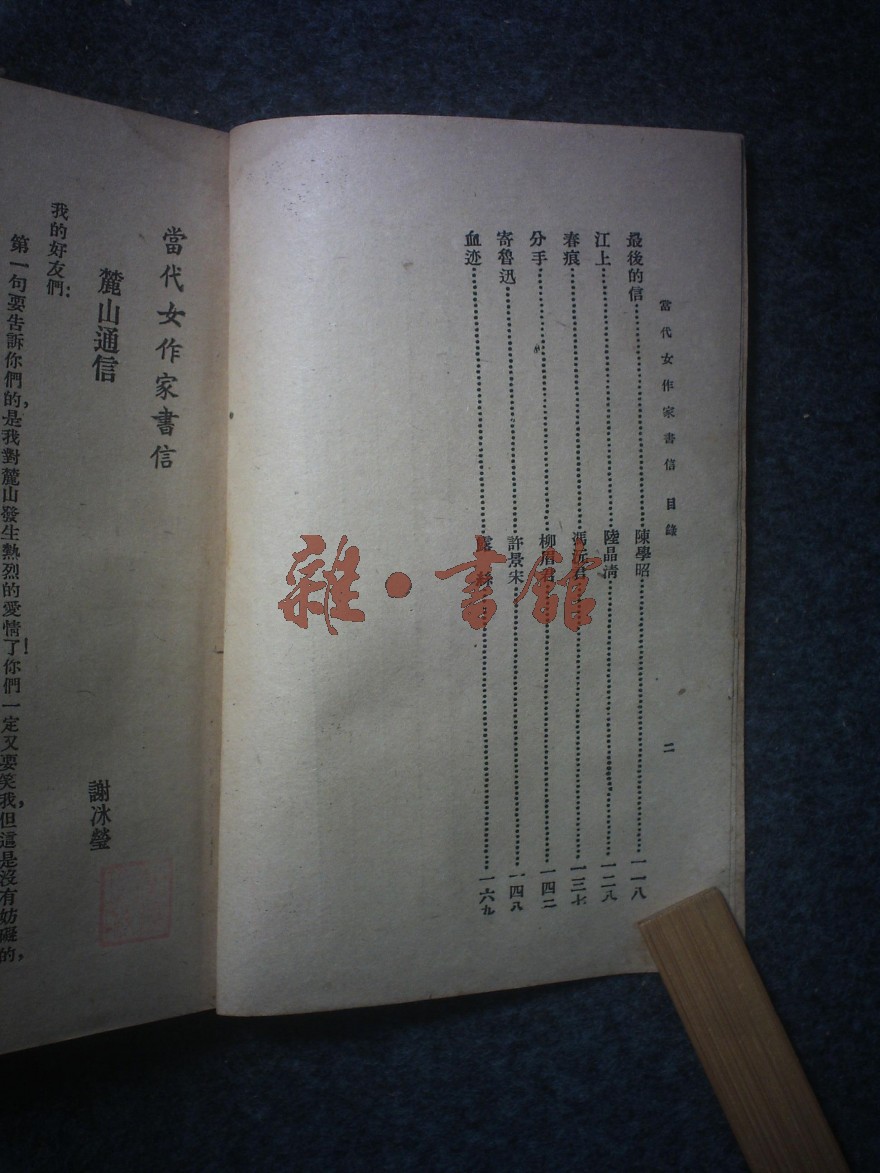 當代女作家書信 目錄 二
最後的信 陳學昭 一一八
江上 陸晶清 一二八
春痕 馮沅君 一三七
分手 柳眉君 一四二
寄魯迅 許景宋 一四八
血迹 絲 一六九
當代女作家書信
麓山通信 謝冰瑩
我的好友們：
第一句要告訴你們的，是我對麓山發生熱烈的愛情了！你們一定又要笑我，但這是沒有妨礙的，
雜·書館